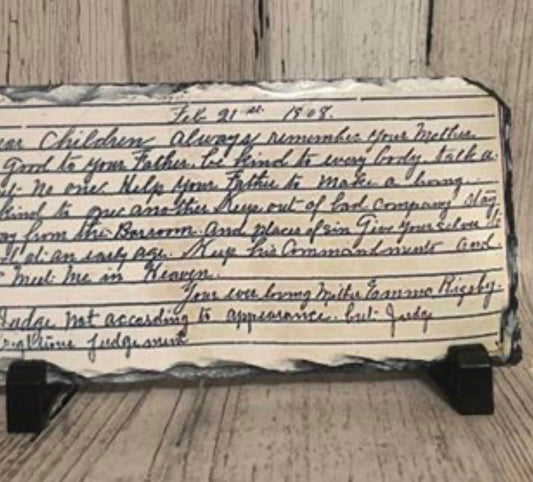 Feb 21st. 1908.
ear Children Always remember your Mother.
Good to your Father. be kind to every body talk a.
st. No one. Help your Father to make a living.
kind to one another Keep out of bad company stay
ay from the Barroom. And places of sin Give yourselves to
at an early age. Keep his Commandments and.
Meet Me in Heaven.
Your ever loving Mother Emma Rigsby.
Judge Not according to appearance. but Judge
righteous Judgement